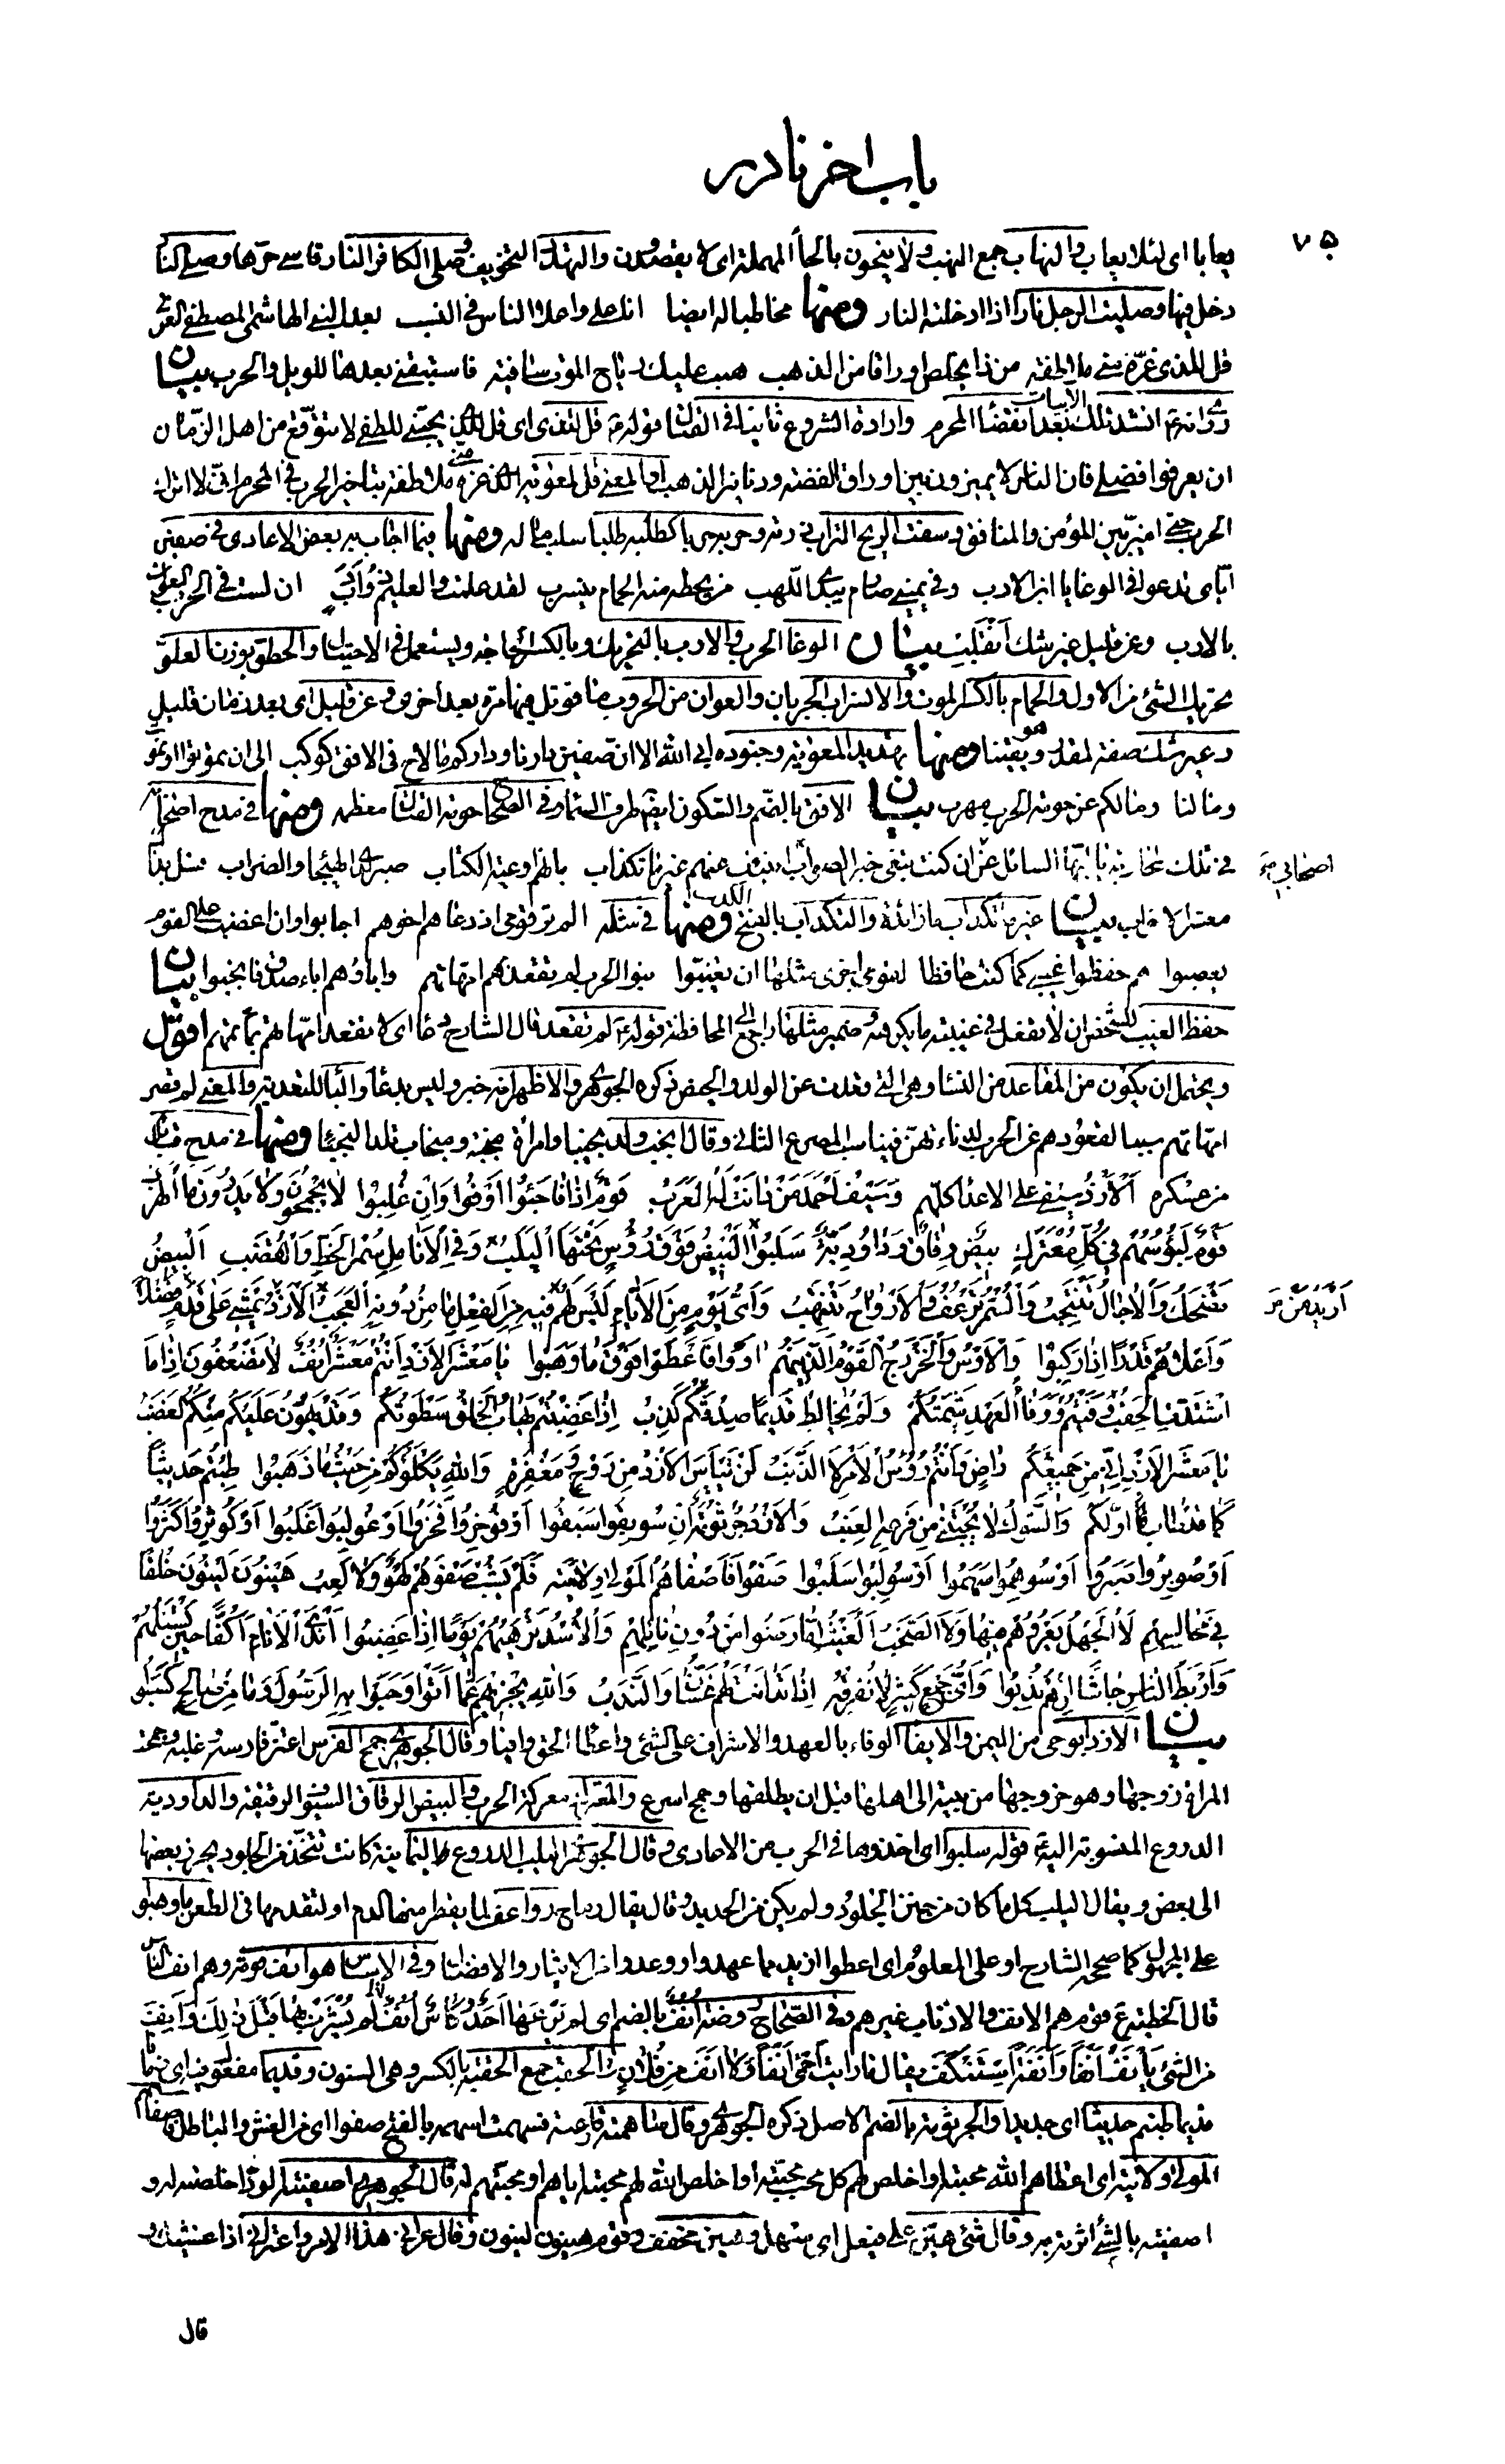 باب اخر نادر
٧٥
يعابا اى لئلا يعاب والنهاب جمع النهب ولا ينحون بالحاء المهملة اى لا يقصدون والهتك التخويف وصلى الكافر النار قاسى حرّها وصلى النار
دخل فيها وصليت الرجل نارا اذا ادخلته النار ومنها مخاطبا له ايضا انا على واعلا الناس فى النسب بعد النبى الهاشمى المصطفى العربى
قل للذى غرّه منى ملاطفة من ذا يخلص اوراقا من الذهب هبت عليك رياح الموت سافية فاستبقنى بعدها للويل والحرب بيان
روى انه انشد تلك الابيات بعد انقضاء المحرم وارادة الشروع ثانيا فى القتال قوله قل للذى اى قل للذى
ان يعرفوا فضلى فان الناس لا يميزون بين اوراق الفضة ودنانير الذهب او المعنى قل لمعوية الذى غره منى ملاطفة بتاخير الحرب فى المحرم انى لا اترك
الحرب حتى اميز بين المؤمن والمنافق وسفت الريح التراب ذرته وحربه حربا كطلبه طلبا سلب ماله ومنها فيما اجاب به بعض الاعادى فى صفين
اياى تدعو فى الوغا يا ابن الارب وفى يمينى صارم يبدى اللهب من يحطه منه الحمام ينسرب لقد علمت والعليم ذو ادب ان لست فى الحرب العوان
بالارب وعن قليل غير شك انقلب بيان الوغا الحرب والارب بالتحريك وبالكسر الحاجة ويستعمل فى الاحتيال والحطو بوزن العلو
تحريك الشئ من الاول والحمام بالكسر الموت والانسراب الجريان والعوان من الحروب ما قوتل فيها مرة بعد اخرى وعن قليل اى بعد زمان قليل
وغير شك صفة لمقدر هو يقينا ومنها تهديدا لمعوية وجنوده ابى الله الا ان صفين دارنا وداركم ما لاح فى الافق كوكب الى ان تموتوا او نموت
ومالنا ومالكم عن حومة الحرب مهرب بيان الافق بالضم والسكون ايضا طرف السماء وفى الصحاح حومة القتال معظمه ومنها فى مدح اصحابه
فى تلك المحاربة يا ايها السائل عن اصحابى ان كنت تبغى خبر الصواب انبئك عنهم غير ما تكذاب بانهم اوعية الكتاب صبر لدى الهيجاء والضراب فسل بذاك
معشر الاحزاب بيان غير ما تكذاب ما زائدة والتكذاب بالفتح الكذب ومنها فى مثله الم تر قومى اذ دعاهم اخوهم اجابوا وان اغضب على القوم
يغضبوا هم حفظوا غيبى كما كنت حافظا لقومى اجزى مثلها ان يغيبوا بنو الحرب لم تقعد بهم امهاتهم واباؤهم اباء صدق فانجبوا بيان
حفظ الغيب للشخص ان لا يفعل فى غيبته ما يكرهه وضمير مثلها راجع الى المحافظة قوله لم تقعد قال الشارح دعاء اى لا تقعد امهاتهم بماتمهم اقول
ويحتمل ان يكون من المقاعد من النساء وهى التى قعدت عن الولد والحيض ذكره الجوهرى والاظهر انه خبر وليس بدعاء والباء للتعدية والمعنى لم تصر
امهاتهم سببا لقعودهم عن الحرب لدناءتهن فيناسب المصرع الثانى وقال انجب ولد نجيبا وامراة منجبة ومنجاب تلد النجباء ومنها فى مدح قبائل
من عسكره اَلْاَزْدُ سيفى على الاعداء كلهم وَسَيْفُ اَحْمَدَ مَنْ دانَتْ لَهُ الْعَرَبُ قومٌ اذا فاجئوا اوفوا وان غلبوا لا يجمحون ولا يدرون ما الهرب
قومٌ لبوسهم فى كل معترك بيضٌ رقاقٌ وداودية سلبوا البيض فوق رؤس تحتها اليلب وفى الانامل سمر الخط والقضب البيض
تضحك والآجال تنتحب والسمر ترعف والارواح تنتهب واى يوم من الايام ليس لهم فيه من الفعل ما من دونه العجب الازد ازيد من يمشى على قدم فضلا
واعلاهم قدرا اذا ركبوا والاوس والخزرج القوم الذين هم آووا فاعطوا فوق ما وهبوا يا معشر الازد انتم معشر انف لا تضعفون اذا ما
اشتدت الحقب وفيتم ووفاء العهد شيمتكم ولم يخالط قديما صدقكم كذب اذا غضبتم يهاب الخلق سطوتكم وقد يهون عليكم منكم الغضب
يا معشر الازد انى من جميعكم راض وانتم رؤس الامر لا الذنب لن ييأس الازد من روح ومغفرة والله يكلؤكم من حيث ما ذهبوا طبتم حديثا
كما قد طاب اولكم والشوك لا يجتنى من فرعه العنب والازد جرثومة ان سوبقوا سبقوا او فوخروا فخروا او غولبوا غلبوا او كوثروا كثروا
او صوبروا صبروا او سوهموا سهموا او سولبوا سلبوا صفوا فاصفاهم المولى ولايته فلم يشب صفوهم لهو ولا لعب هينون لينون خلقا
فى مجالسهم لا الجهل يعروهم فيها ولا الصخب الغيث اما رضوا من دون نائلهم والاسد ترهبهم يوما اذا غضبوا اندى الانام اكفا حين تسئلهم
واربط الناس جاشا ان هم ندبوا واى جمع كثير لا تفرقه اذا تدانت لهم غسان والندب والله يجزيهم عما اتوا وحبوا به الرسول وما من صالح كسبوا
بيان الازد ابوحى من اليمن والايفاء الوفاء بالعهد والاشراف على الشئ واعطاء الحق وافيا وقال الجوهرى جمح الفرس اعتز فارسه وغلبه وجمحت
المراة زوجها وهو خروجها من بيته الى اهلها قبل ان يطلقها وجمح اسرع والمعترك معركة الحرب والبيض الرقاق السيوف الرقيقة والداودية
الدروع المنسوبة اليه قوله سلبوا اى اخذوها فى الحرب من الاعادى وقال الجوهرى اليلب الدروع اليمانية كانت تتخذ من الجلود يخرز بعضها
الى بعض ويقال اليلب كل ما كان من جنن الجلود ولم يكن من الحديد وقال يقال رماح رواعف لما يقطر منها الدم او لتقدمها فى الطعن ما وهبوا
على المجهول كما صححه الشارح او على المعلوم اى اعطوا ازيد مما عهدوا ووعدوا من الايثار والافضال وفى الاساس هو انف قومه وهم انف الناس
قال الحطيئة ع قوم هم الانف والاذناب غيرهم وفى الصحاح روضة انف بالضم اى لم يرعها احد وكاس انف لم يشرب بها قبل ذلك وانف
من الشئ يانف انفا وانفة استنكف يقال ما رايت احمى انفا ولا انف من فلان والحقب جمع الحقبة بالكسر وهى السنون وقديما مفعول فيه اى زمانا
قديما طبتم حديثا اى جديدا والجرثومة بالضم الاصل ذكره الجوهرى وقال ساهمته قارعته فسهمته اسهمه بالفتح صفوا اى من الغش والباطل فاصفاهم
المولى ولايته اى اعطاهم الله محبته او اخلص لهم كل محب محبته او اخلص الله لهم محبته اياهم او محبتهم له قال الجوهرى اصفيته الود اخلصته له و
اصفيته بالشئ اثرته به وقال شئ هين على فيعل اى سهل وهين مخفف وقوم هينون لينون وقال عرانى هذا الامر واعترانى اذا غشيك و
قال